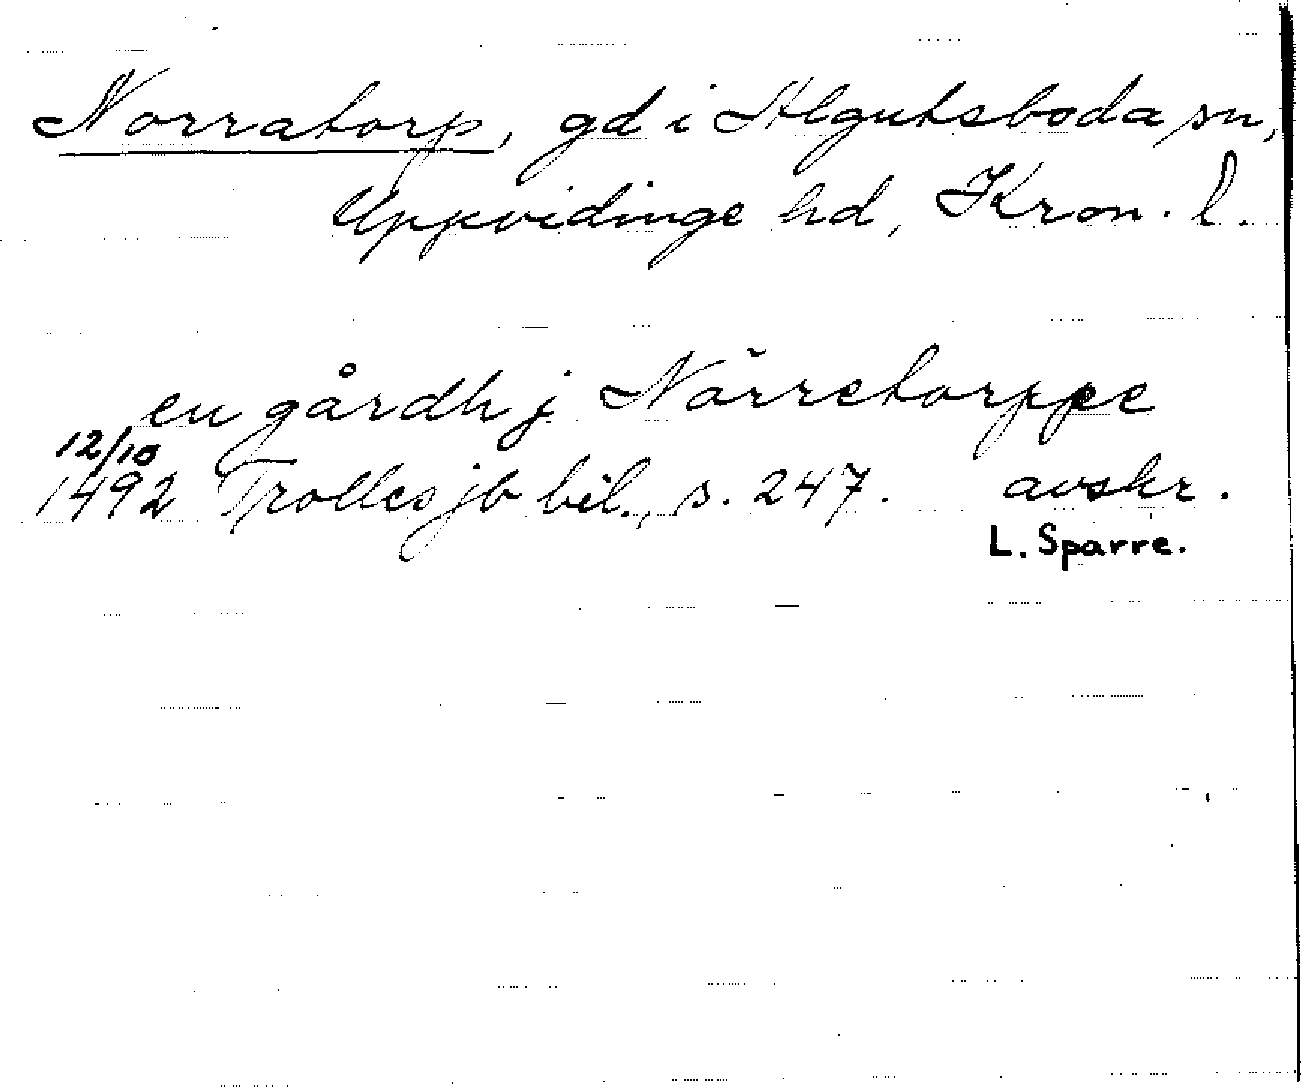 Norratorp, gd i Algutsboda sn,
Uppvidinge hd, Kron. l.
en gårdh j Nörretorppe
12/10
1492 Trolles jb bil., s. 247. avskr.
L. Sparre.